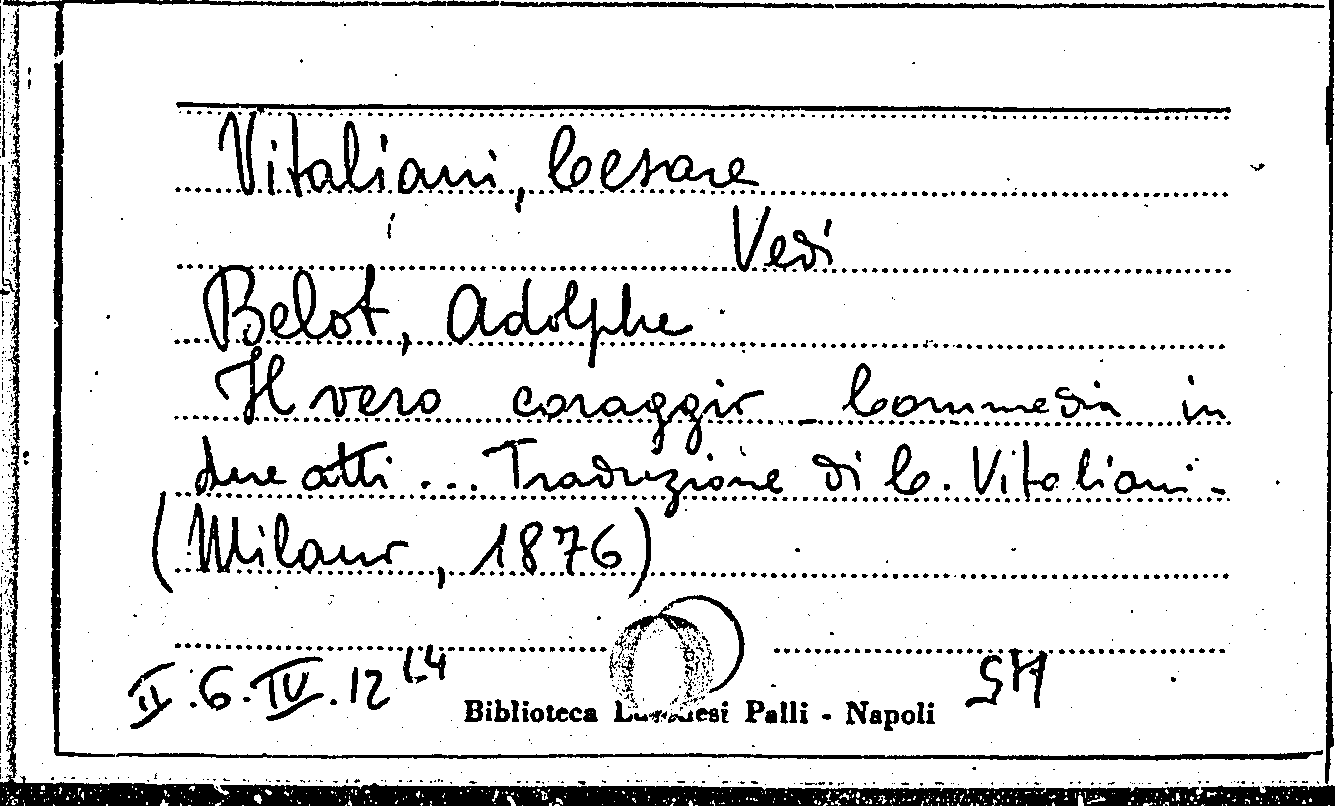 Vitaliani, Cesare
Vedi
Belot, Adolphe
Il vero coraggio - Commedia in
due atti ... Traduzione di C. Vitaliani -
(Milano, 1876)
II.6.IV.12
Biblioteca Palli - Napoli